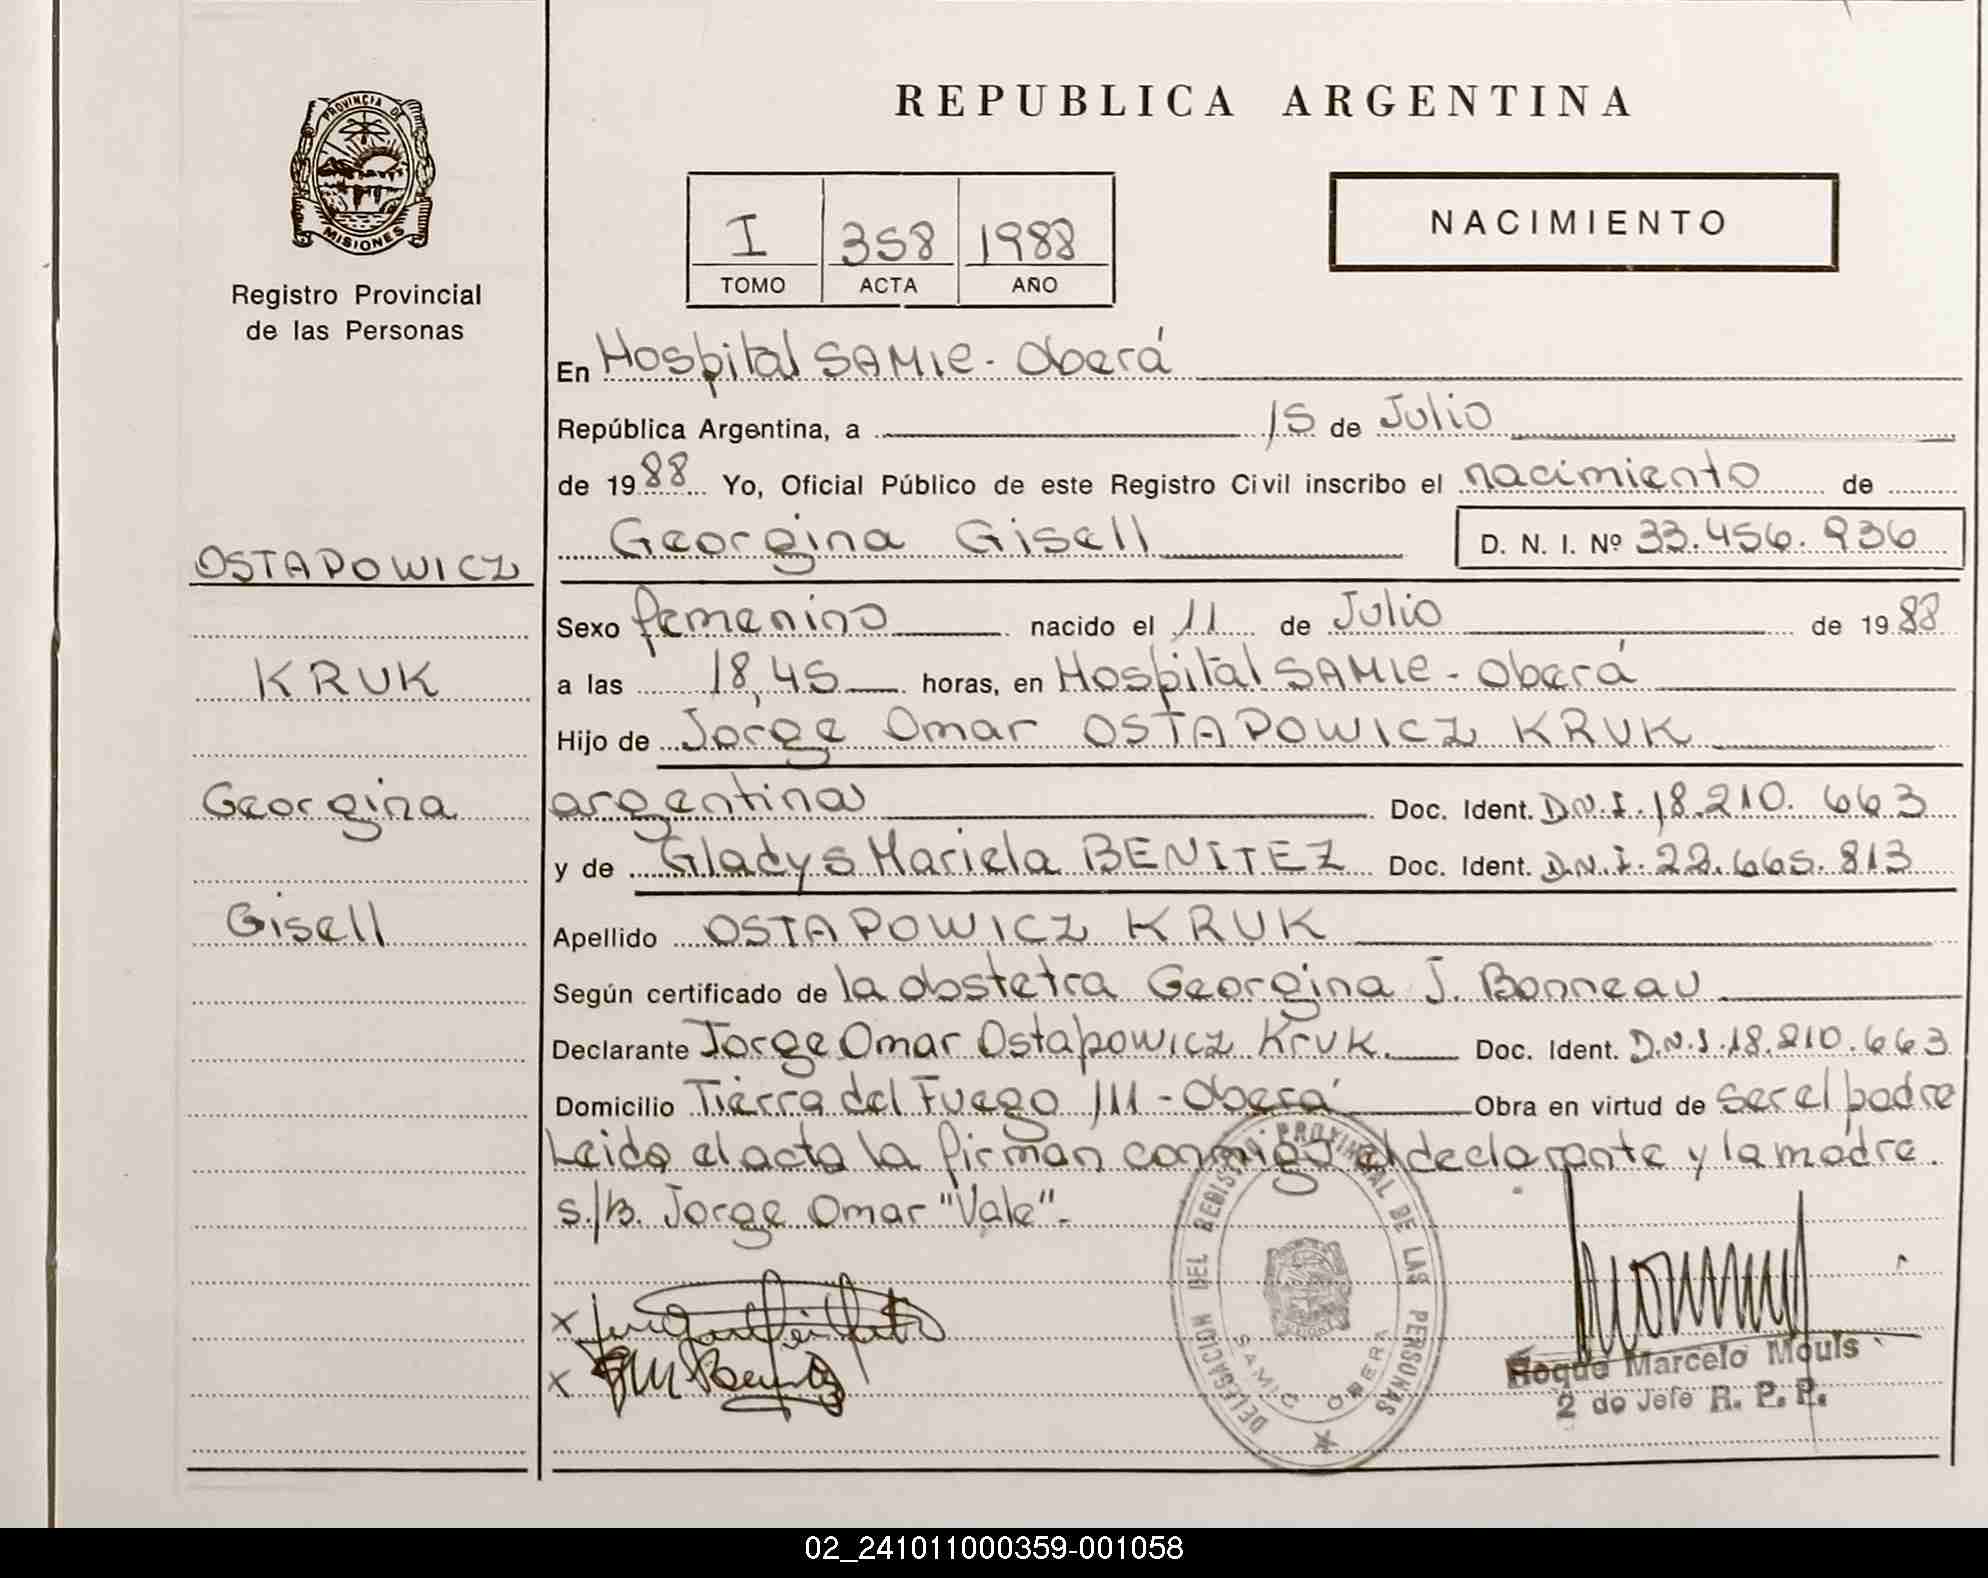 PROVINCIA DE
MISIONES
Registro Provincial
de las Personas
OSTAPOWICZ
KRUK
Georgina
Gisell
REPUBLICA ARGENTINA
I 358 1988
TOMO ACTA AÑO
NACIMIENTO
En Hospital SAMIC - Oberá
República Argentina, a 15 de Julio
de 1988 Yo, Oficial Público de este Registro Civil inscribo el nacimiento de
Georgina Gisell D. N. I. Nº 33.456.936
Sexo femenino nacido el 11 de Julio de 1988
a las 18,45 horas, en Hospital SAMIC - Oberá
Hijo de Jorge Omar OSTAPOWICZ KRUK
argentinos Doc. Ident. D.N.I. 18.210.663
y de Gladys Mariela BENITEZ Doc. Ident. D.N.I. 22.665.813
Apellido OSTAPOWICZ KRUK
Según certificado de la obstetra Georgina J. Bonneau
Declarante Jorge Omar Ostapowicz Kruk. Doc. Ident. D.N.I. 18.210.663
Domicilio Tierra del Fuego 111 - Oberá Obra en virtud de ser el padre
Leida el acta la firman conmigo el declarante y la madre.
s./b. Jorge Omar "Vale".
DELEGACION DEL REGISTRO PROVINCIAL DE LAS PERSONAS
SAMIC OBERA
Roque Marcelo Mouls
2 do Jefe R. P. P.
02_241011000359-001058